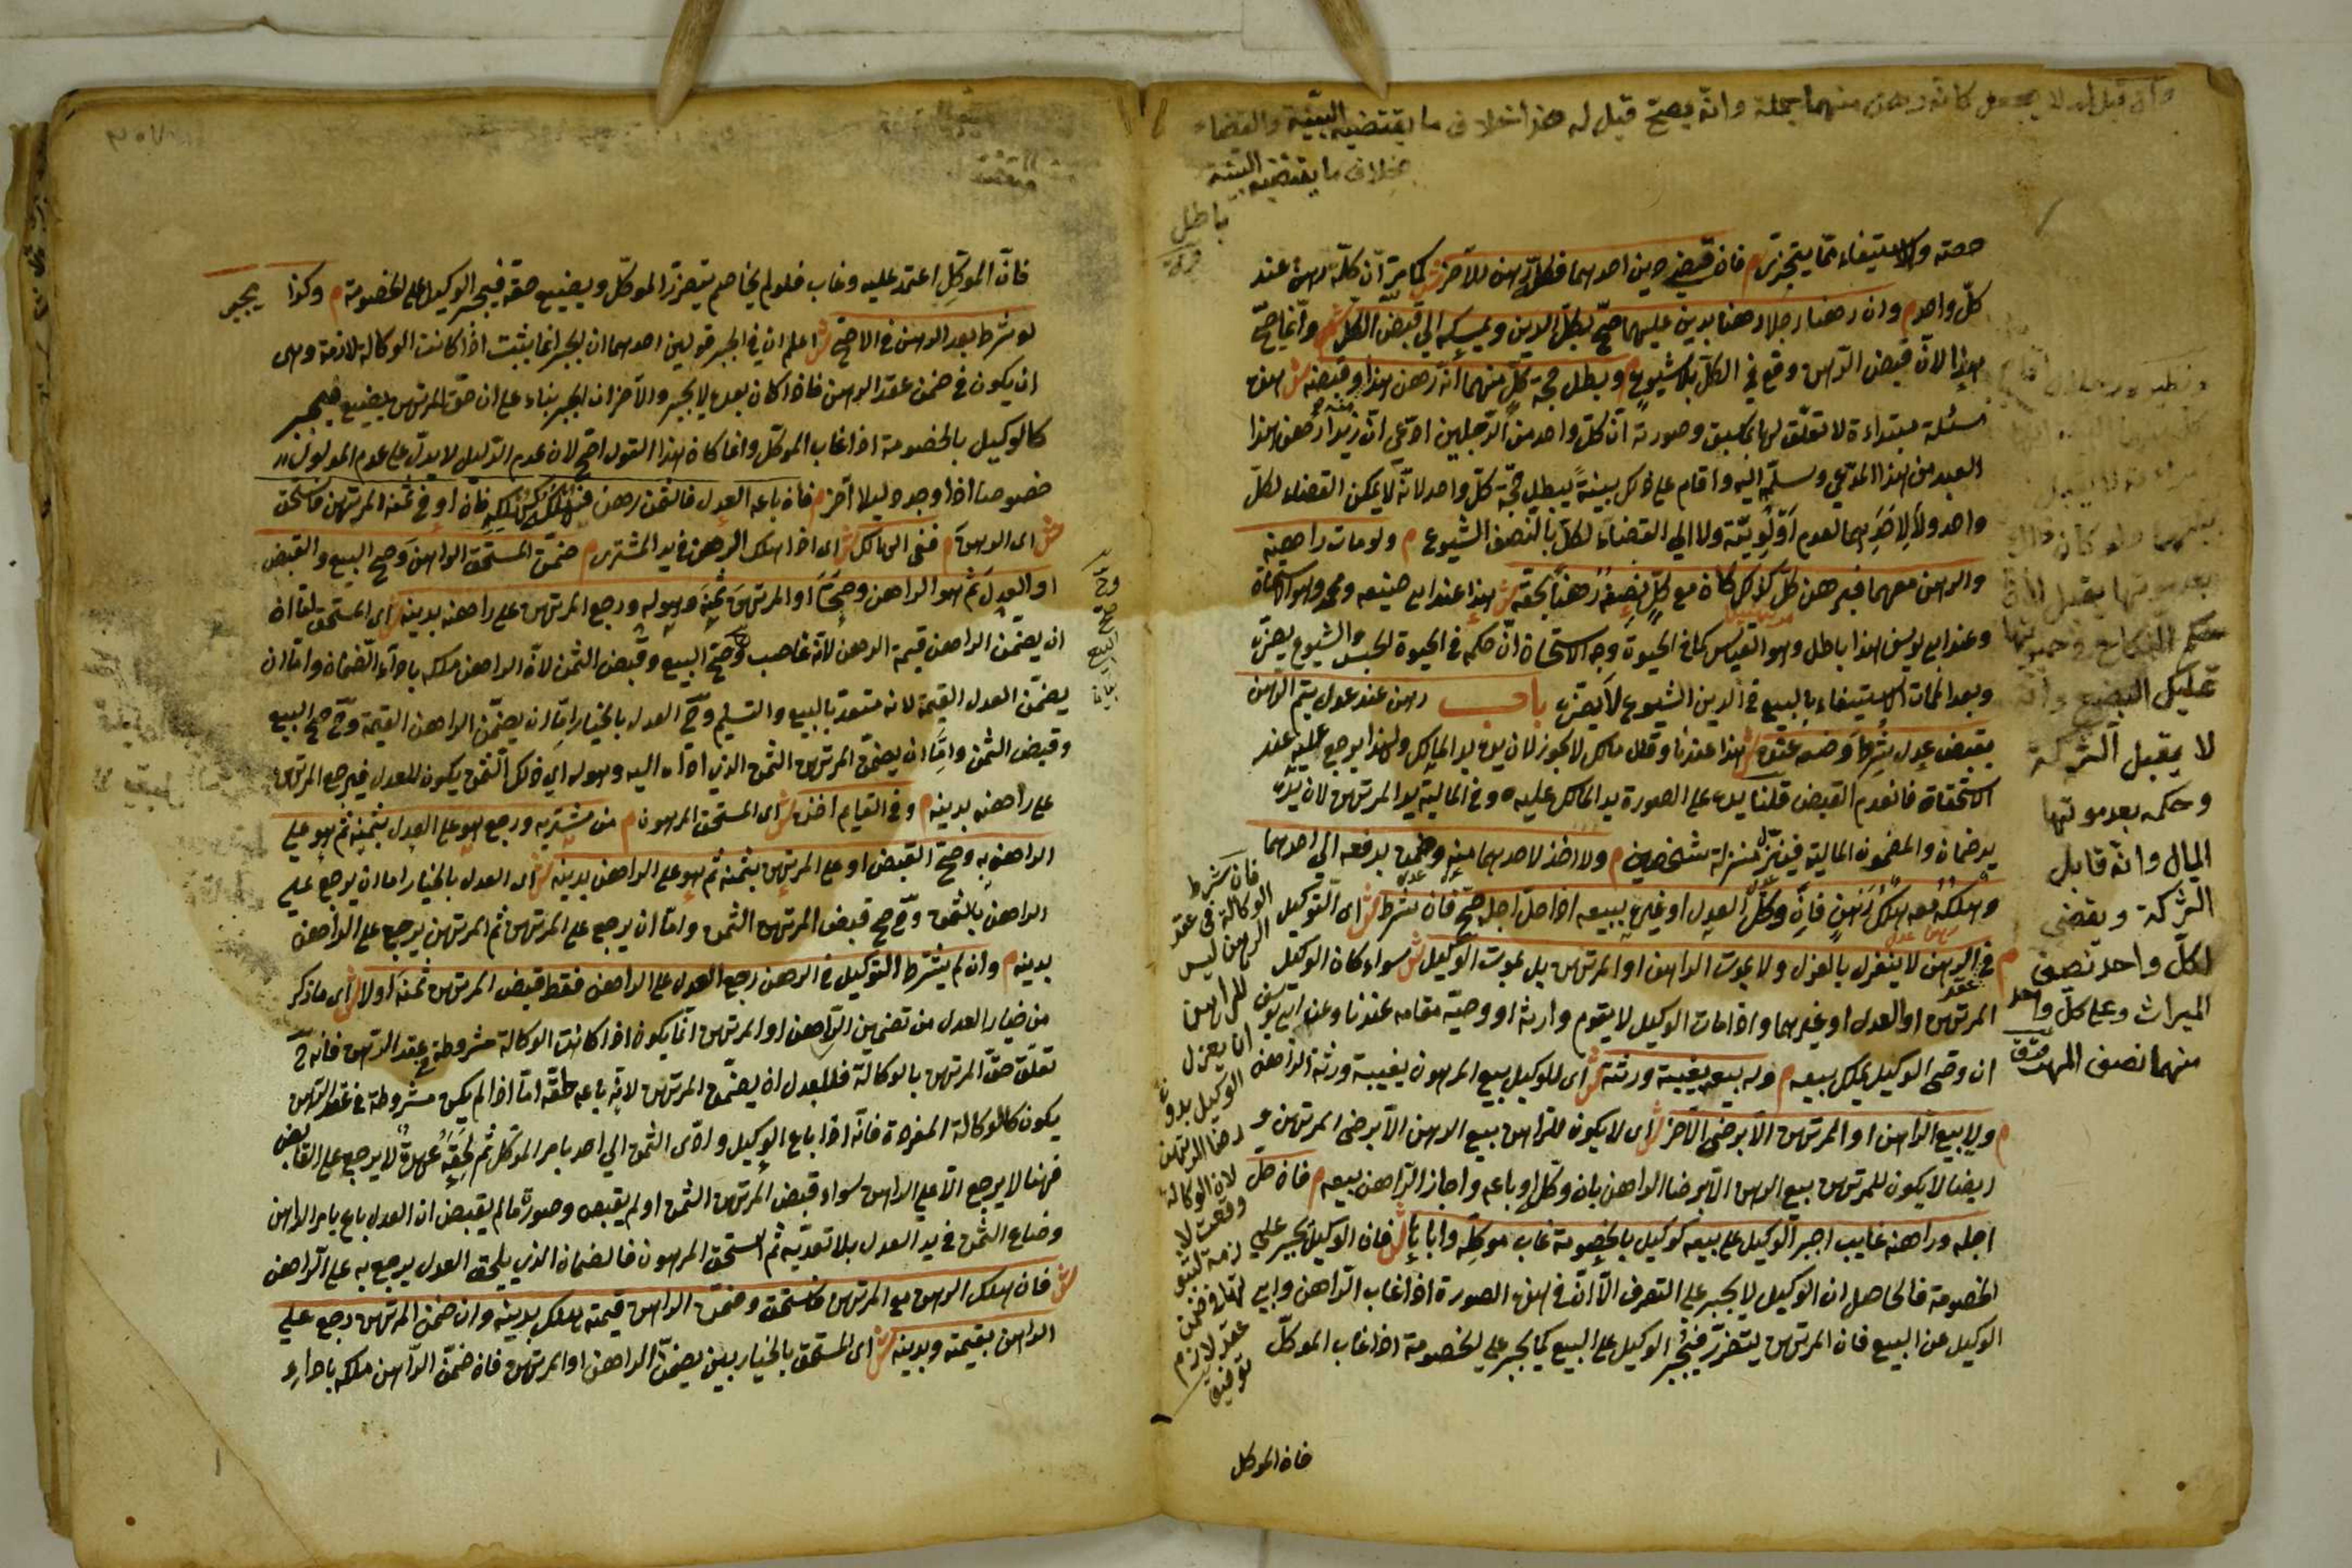 وان قيل انه لا يجعل كانه رهن منهما جملة وانه يصح قيل له هذا خلاف ما يقتضيه البينة والقضاء
بخلاف ما يقتضيه البينة
باطل
حصته والاستيفاء مما يتجزى م فان قضى دين احدهما فكله رهن للآخر ش لما مر ان كله رهن عند
كل واحد م وان رهنا رجلا رهنا بدين عليهما صح بكل الدين ويمسكه الى قبض الكل ش وانما صح
هذا لان قبض الرهن وقع في الكل بلا شيوع م وبطل حجة كل منهما انه رهن هذا وقبضه ش هذه
مسئلة مبتداءة لا تعلق لها بما سبق وصورته ان كل واحد من الرجلين ادعى ان زيدا رهن هذا
العبد من هذا المدعي وسلمه اليه واقام على ذلك بينة يبطل حجة كل واحد لانه لا يمكن القضاء لكل
واحد ولا لاحدهما لعدم اولويته ولا الى القضاء لكل بالنصف للشيوع م ولو مات راهنه
والرهن معهما فبرهن كل كذلك كان مع كل نصفه رهنا بحقه ش هذا عند ابي حنيفة ومحمد وهو استحسان
وعند ابي يوسف هذا باطل وهو القياس كما في الحيوة وجه الاستحسان ان حكمه في الحيوة الحبس والشيوع يضره
وبعد الممات الاستيفاء بالبيع في الدين الشيوع لا يضره باب رهن عند عدل يتم الرهن
بقبض عدل شرطا وضعه عنده ش هذا عندنا وقال مالك لا يجوز لان يده يد المالك ولهذا يرجع عليه عند
الاستحقاق فانعدم القبض قلنا يده على الصورة يد المالك عليه وفي المالية يد المرتهن لان يده
يد ضمان والمضمون المالية فينزل منزلة شخصين م ولا اخذ لاحدهما منه وضمن بدفعه الى احدهما
وهلكه معه هلك رهن فان وكل العدل او غيره ببيعه اذا حل اجله صح فان شرط ش اى التوكيل
م في الرهن لا ينعزل بالعزل ولا بموت الراهن او المرتهن بل بموت الوكيل ش سواء كان الوكيل
المرتهن او العدل او غيرهما واذا مات الوكيل لا يقوم وارثه او وصيه مقامه عندنا وعند ابي يوسف
ان وصى الوكيل يملك بيعه م وله بيعه بغيبة ورثته ش اى للوكيل بيع المرهون بغيبة ورثة الراهن
م ولا بيع الراهن او المرتهن الا برضى الآخر ش اى لا يكون للراهن بيع الرهن الا برضى المرتهن و
ايضا لا يكون للمرتهن بيع الرهن الا برضا الراهن بان وكله او باعه واجاز الراهن بيعه م فان حل
اجله وراهنه غايب اجبر الوكيل على بيعه كوكيل بالخصومة غاب موكله واباها ش فان الوكيل يجبر على
الخصومة فالحاصل ان الوكيل لا يجبر على التصرف الا انه في هذه الصورة اذا غاب الراهن وابى
الوكيل عن البيع فان المرتهن يتضرر فيجبر الوكيل على البيع كما يجبر على الخصومة اذا غاب الموكل
بعد موتها يقبل لان
حكم النكاح في حيوتها
تمليك البضع وانه
لا يقبل الشركة
وحكمه بعد موتها
المال وانه قابل
للشركة ويقضى
لكل واحد نصف
الميراث وعلى كل واحد
منهما نصف المهر
فان شرط
الوكالة في عقد
الرهن ليس
للراهن
ان يعزل
الوكيل بدون
رضا المرتهن
لان الوكالة
وقعت لا
زمة لثبو
تها في ضمن
عقد لازم
فان الموكل
فان الموكل اعتمد عليه وغاب فلو لم يخاصم يتضرر الموكل ويضيع حقه فيجبر الوكيل على الخصومة م وكذا يجبر
لو شرط بعد الرهن في الاصح ش اعلم ان في الجبر قولين احدهما ان الجبر انما يثبت اذا كانت الوكالة لازمة وهى
ان يكون في ضمن عقد الرهن فاذا كان بعده لا يجبر والآخر ان الجبر بناء على ان حق المرتهن يضيع فيجبر
كالوكيل بالخصومة اذا غاب الموكل وانما كان هذا القول اصح لان عدم الدليل لا يدل على عدم المدلول
خصوصا اذا وجد دليلا آخر م فان باعه العدل فالثمن رهن فهلكه كهلكه فان اوفى ثمنه المرتهن فاستحق
ش اى الرهن م ففى الهالك ش اى اذا هلك الرهن في يد المشترى م ضمن المستحق الراهن وصح البيع والقبض
او العدل ثم هو الراهن وصحا او المرتهن ثمنه وهو له ورجع المرتهن على راهنه بدينه ش اى المستحق اما ان
ان يضمن الراهن قيمة الرهن لانه غاصب وصح البيع وقبض الثمن لان الراهن ملكه باداء الضمان واما ان
يضمن العدل القيمة لانه متعد بالبيع والتسليم وح العدل بالخيار اما ان يضمن الراهن القيمة وح صح البيع
وقبض الثمن واما ان يضمن المرتهن الثمن الذي اداه اليه وهو له اي ذلك الثمن يكون للعدل فيرجع المرتهن
على راهنه بدينه م وفي القايم اخذه ش اى المستحق المرهون م من مشتريه ورجع هو على العدل بثمنه ثم هو على
الراهن به وصح القبض او على المرتهن بثمنه ثم هو على الراهن بدينه ش اى العدل بالخيار اما ان يرجع على
الراهن بالثمن وح صح قبض المرتهن الثمن واما ان يرجع على المرتهن ثم المرتهن يرجع على الراهن
بدينه م وان لم يشترط التوكيل في الرهن رجع العدل على الراهن فقط قبض المرتهن ثمنه اولا ش اى ما ذكر
من خيار العدل من تضمين الراهن او المرتهن انما يكون اذا كانت الوكالة مشروطة في عقد الرهن فانه ح
تعلق حق المرتهن بالوكالة فللعدل ان يضمن المرتهن لانه باعه لحقه اما اذا لم يكن مشروطة في عقد الرهن
يكون كالوكالة المفردة فانه اذا باع الوكيل وادى الثمن الى احد بامر الموكل ثم لحقه عهدة لا يرجع على القابض
فهنا لا يرجع الا على الراهن سواء قبض المرتهن الثمن او لم يقبضه وصورة ما لم يقبض ان العدل باع بامر الراهن
وضاع الثمن في يد العدل بلا تعديه ثم استحق المرهون فالضمان الذي يلحق العدل يرجع به على الراهن
ش فان هلك الرهن مع المرتهن فاستحق وضمن الراهن قيمته هلك بدينه وان ضمن المرتهن رجع على
الراهن بقيمته وبدينه ش اى المستحق بالخيار بين يضمن الراهن او المرتهن فان ضمن الراهن ملكه باداء